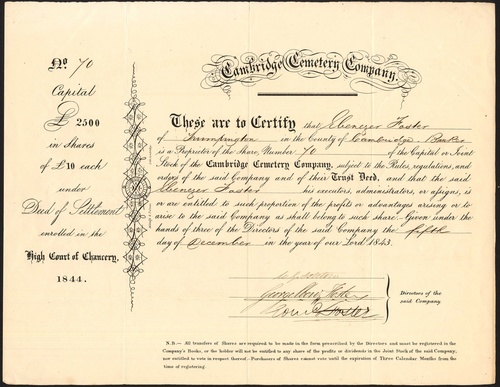 No. 70
Capital
£ 2500
in Shares
of £10 each
under
Deed of Settlement
enrolled in the
High Court of Chancery,
1844.
Cambridge Cemetery Company.
These are to Certify that Ebenezer Foster
of Trumpington in the County of Cambridge, Banker
is a Proprietor of the Share, Number 70 of the Capital or Joint
Stock of the Cambridge Cemetery Company, subject to the Rules, regulations, and
orders of the said Company and of their Trust Deed, and that the said
Ebenezer Foster his executors, administrators, or assigns, is
or are entitled to such proportion of the profits or advantages arising or to
arise to the said Company as shall belong to such share. Given under the
hands of three of the Directors of the said Company the fifth
day of December in the year of our Lord 1843.
Foster
Foster
Directors of the
said Company.
N.B.— All transfers of Shares are required to be made in the form prescribed by the Directors and must be registered in the
Company's Books, or the holder will not be entitled to any share of the profits or dividends in the Joint Stock of the said Company,
nor entitled to vote in respect thereof.—Purchasers of Shares cannot vote until the expiration of Three Calendar Months from
the time of registering.